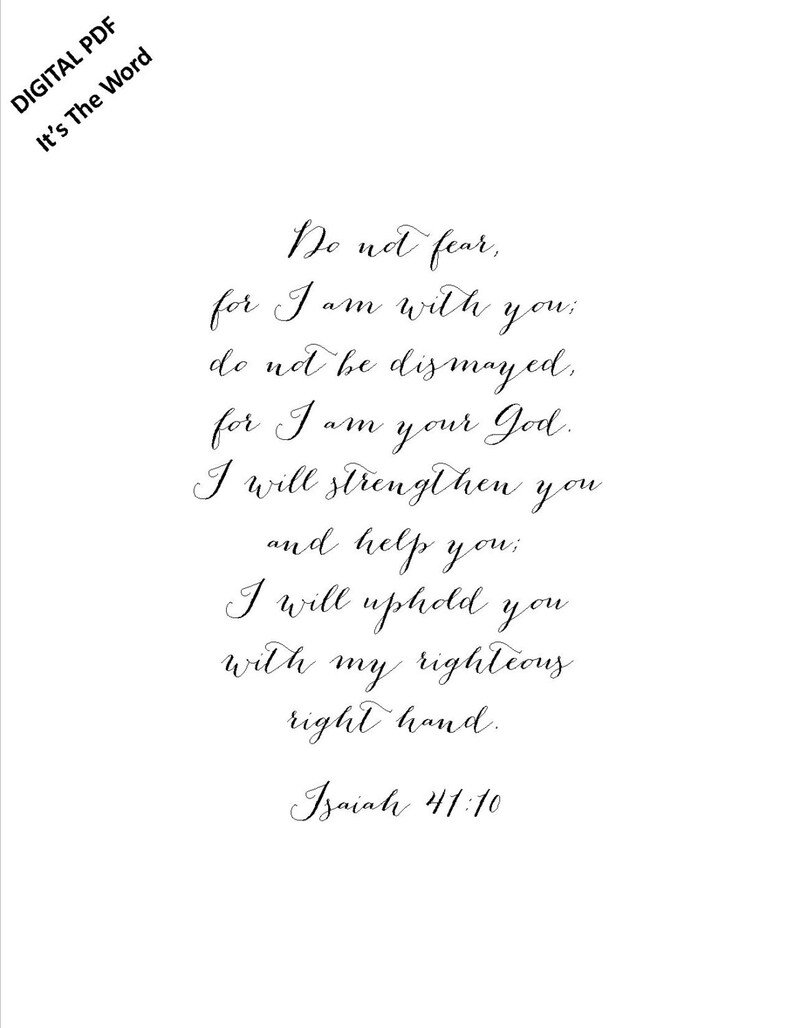 DIGITAL PDF
It's The Word
Do not fear,
for I am with you;
do not be dismayed,
for I am your God.
I will strengthen you
and help you;
I will uphold you
with my righteous
right hand.
Isaiah 41:10